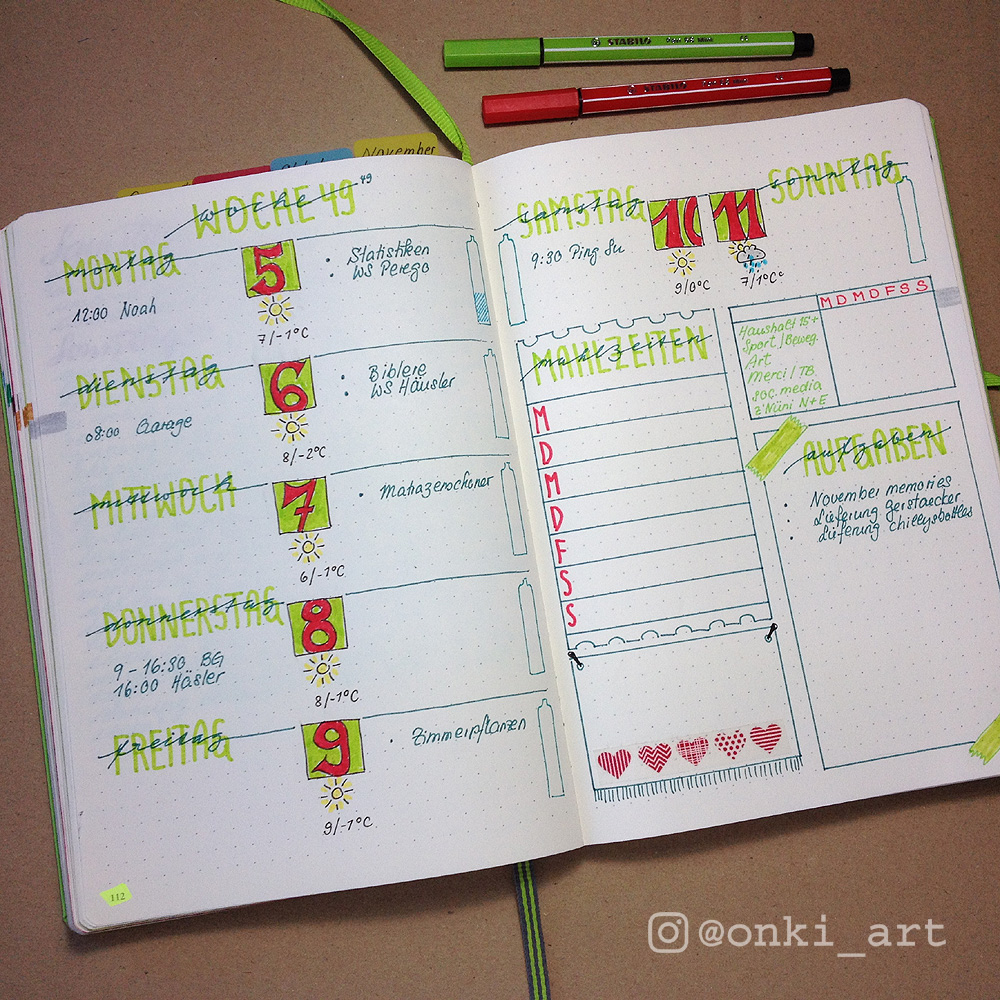 STABILO
STABILO
November
WOCHE 49
woche 49
MONTAG
montag
5
12:00 Noah
7/-1°C
• Statistiken
WS Perego
DIENSTAG
dienstag
6
08:00 Garage
8/-2°C
• Biblere
WS Häusler
MITTWOCH
mittwoch
7
6/-1°C
DONNERSTAG
donnerstag
8
9-16:30 BG
16:00 Häsler
8/-1°C
FREITAG
freitag
9
9/-1°C
• Zimmerpflanzen
112
SAMSTAG
samstag
10
9:30 Ping Su
9/0°C
SONNTAG
sonntag
11
7/1°C
MAHLZEITEN
mahlzeiten
M
D
M
D
F
S
S
M D M D F S S
Haushalt 15+
Sport/Beweg.
Art
Merci/TB
soc. media
z'Nüni N+E
AUFGABEN
aufgaben
• November memories
• Lieferung gerstaecker
• Lieferung chillysbottles
@onki_art